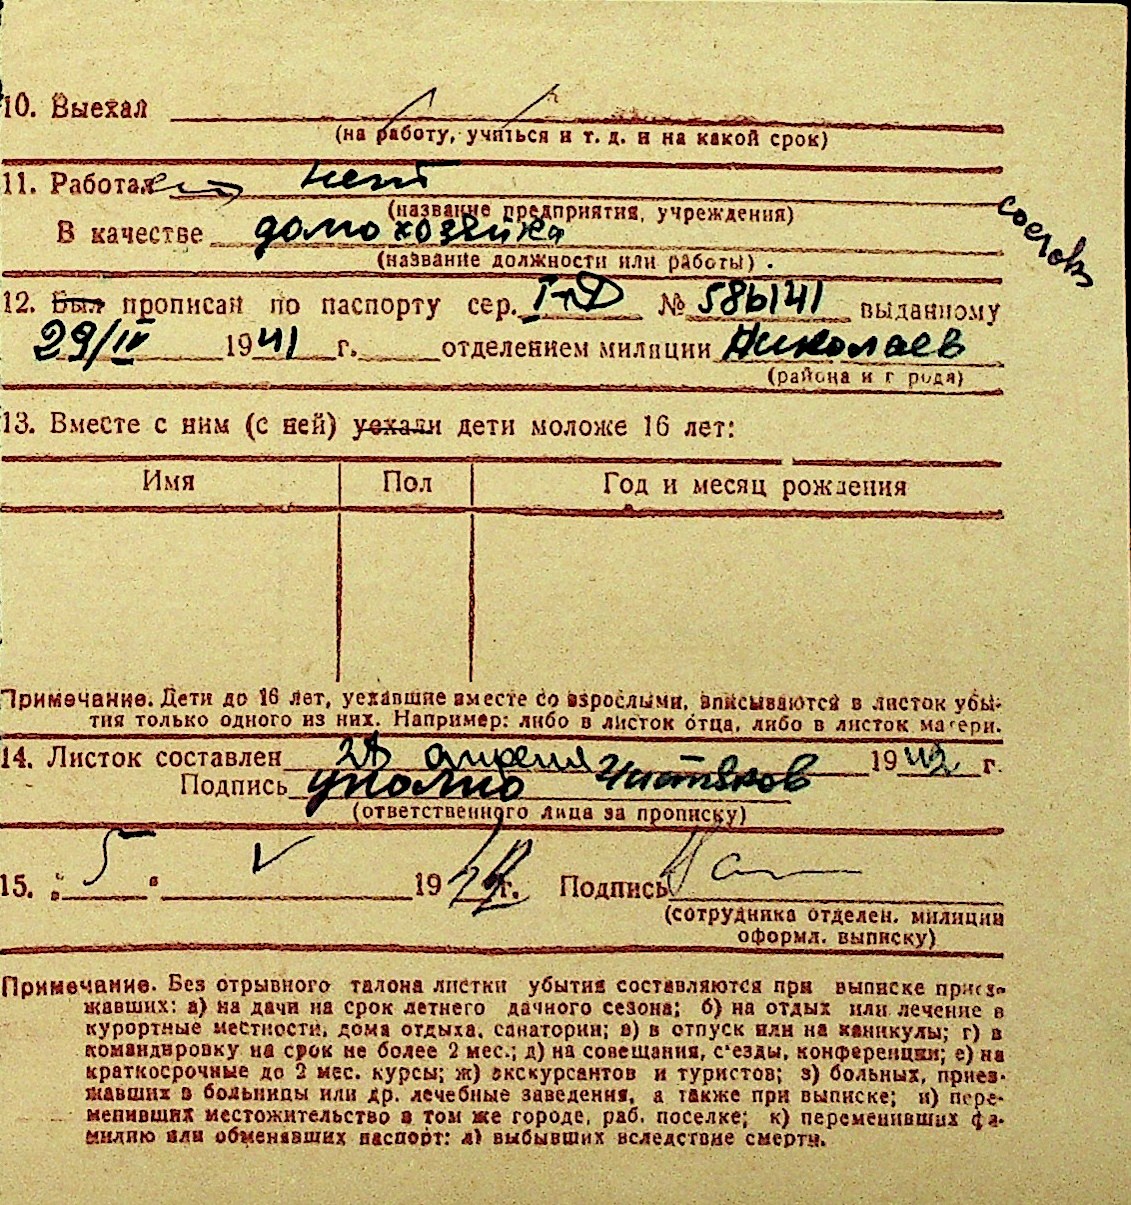 10. Выехал
(на работу, учиться и т. д. и на какой срок)
11. Работал нет
(название предприятия, учреждения)
В качестве домохозяйка
(название должности или работы).
12. Был прописан по паспорту сер. № 586141 выданному
29/III 1941 г. отделением милиции Николаев
(района и города)
13. Вместе с ним (с ней) уехали дети моложе 16 лет:
Имя Пол Год и месяц рождения
Примечание. Дети до 16 лет, уехавшие вместе со взрослыми, вписываются в листок убы-
тия только одного из них. Например: либо в листок отца, либо в листок матери.
14. Листок составлен 28 апреля 1942 г.
Подпись уполно Чистяков
(ответственного лица за прописку)
15. "5" V 1942 г. Подпись
(сотрудника отделен. милиции
оформл. выписку)
Примечание. Без отрывного талона листки убытия составляются при выписке приез-
жавших: а) на дачи на срок летнего дачного сезона; б) на отдых или лечение в
курортные местности, дома отдыха, санатории; в) в отпуск или на каникулы; г) в
командировку на срок не более 2 мес.; д) на совещания, с'езды, конференции; е) на
краткосрочные до 2 мес. курсы; ж) экскурсантов и туристов; з) больных, приез-
жавших в больницы или др. лечебные заведения, а также при выписке; и) пере-
менивших местожительство в том же городе, раб. поселке; к) переменивших фа-
милию или обменявших паспорт: л) выбывших вследствие смерти.